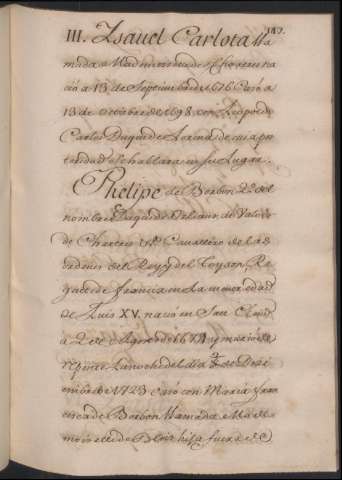 147.
III. Ysavel Carlota lla
mada Madmoisela de Chartres na
ció a 13 de Septiembre de 1676 Casó a
13 de Octubre de 1698 con Leopoldo
Carlos Duque de Lorena de su a pos
teridad se hallara en su Lugar.
Phelipe de Borbon 2º del
nombre Duque de Orleans de Valois
de Chartres &ª Cavallero de las
ordenes del Rey y del Toyson, Re
gente de Francia en la menor edad
de Luis XV. nació en San Cloud
a 2 de Agosto de 1674 y murió de
repente la noche del dia 2 de Dezi
embre de 1723 casó con Maria Fran
cisca de Borbon llamada Madle
moiselle de Blois hija fuera de